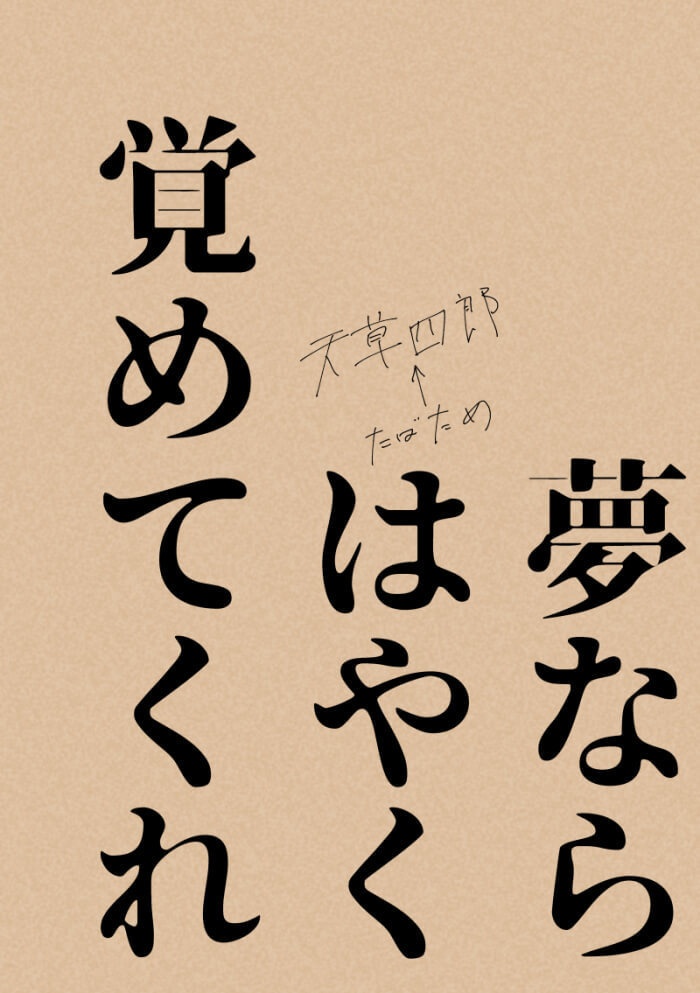 夢なら
はやく
覚めてくれ
天草四郎
↑
たばため